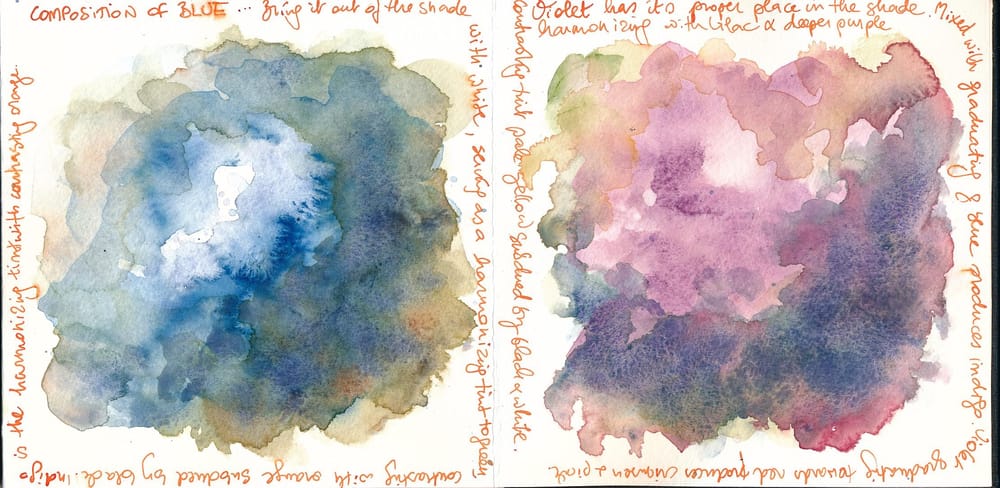 COMPOSITION OF BLUE ... Bring it out of the shade
with white, serving as a harmonizing tint to green,
contrasting with orange subdued by black. Indigo
is the harmonizing tint with contrasting orange.
Violet has it's proper place in the shade.
harmonizing with lilac & deeper purple
Mixed with graduating & blue produces indigo. Violet
graduating towards red produces crimson & pink
Contrasting tint pale yellow subdued by black & white.